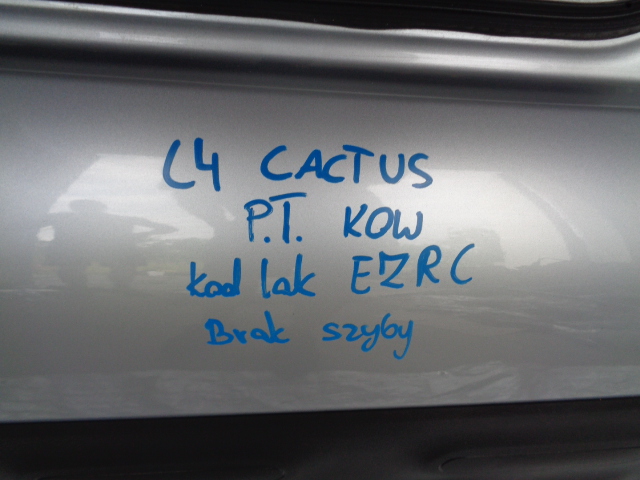 C4 CACTUS
P.T. KOW
kod lak EZRC
Brak szyby